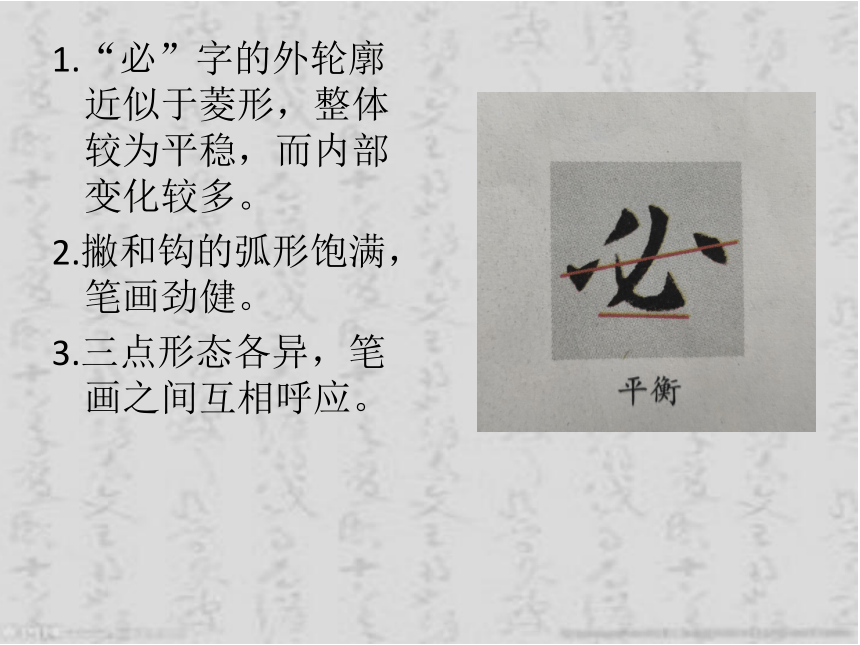 1.“必”字的外轮廓
近似于菱形，整体
较为平稳，而内部
变化较多。
2.撇和钩的弧形饱满，
笔画劲健。
3.三点形态各异，笔
画之间互相呼应。
必
平衡